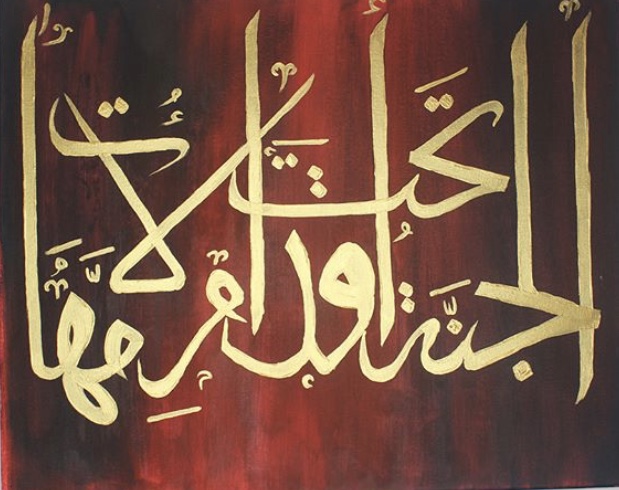 الجَنَّةُ تَحْتَ أَقْدَامِ الأُمَّهَاتِ